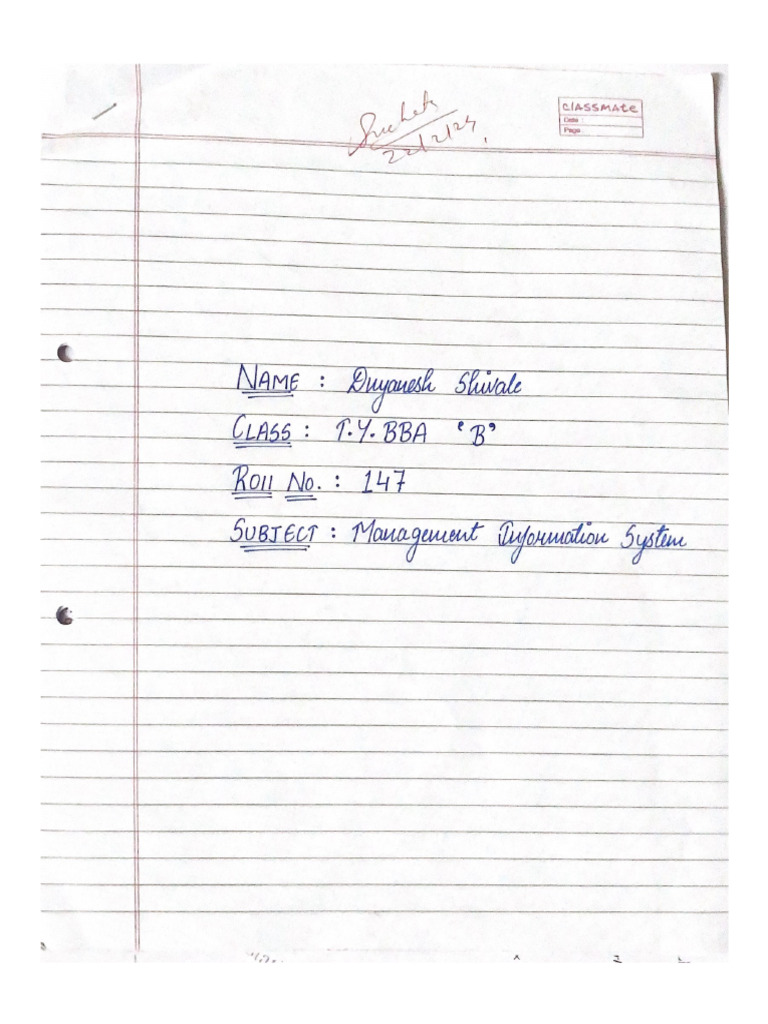 Sucheta
22/2/24
CLASSMATE
Date :
Page :
NAME : Dnyanesh Shivale
CLASS : T.Y.BBA 'B'
ROll No. : 147
SUBJECT : Management Information System